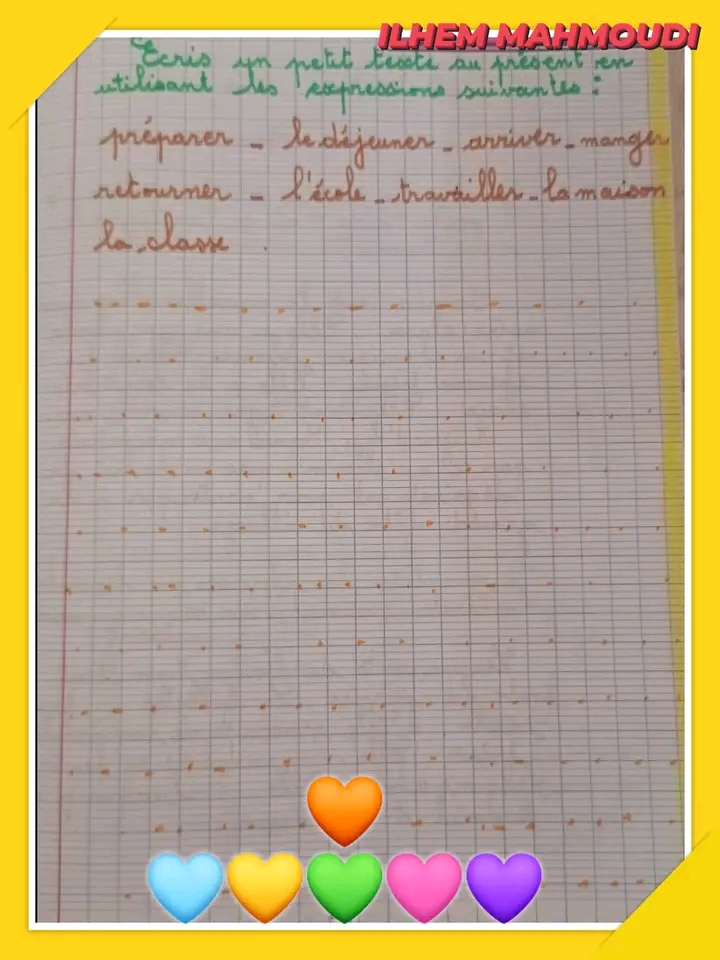 ILHEM MAHMOUDI
Ecris un petit texte au présent en
utilisant les expressions suivantes :
préparer - le déjeuner - arriver - manger
retourner - l'école - travailler - la maison
la classe .